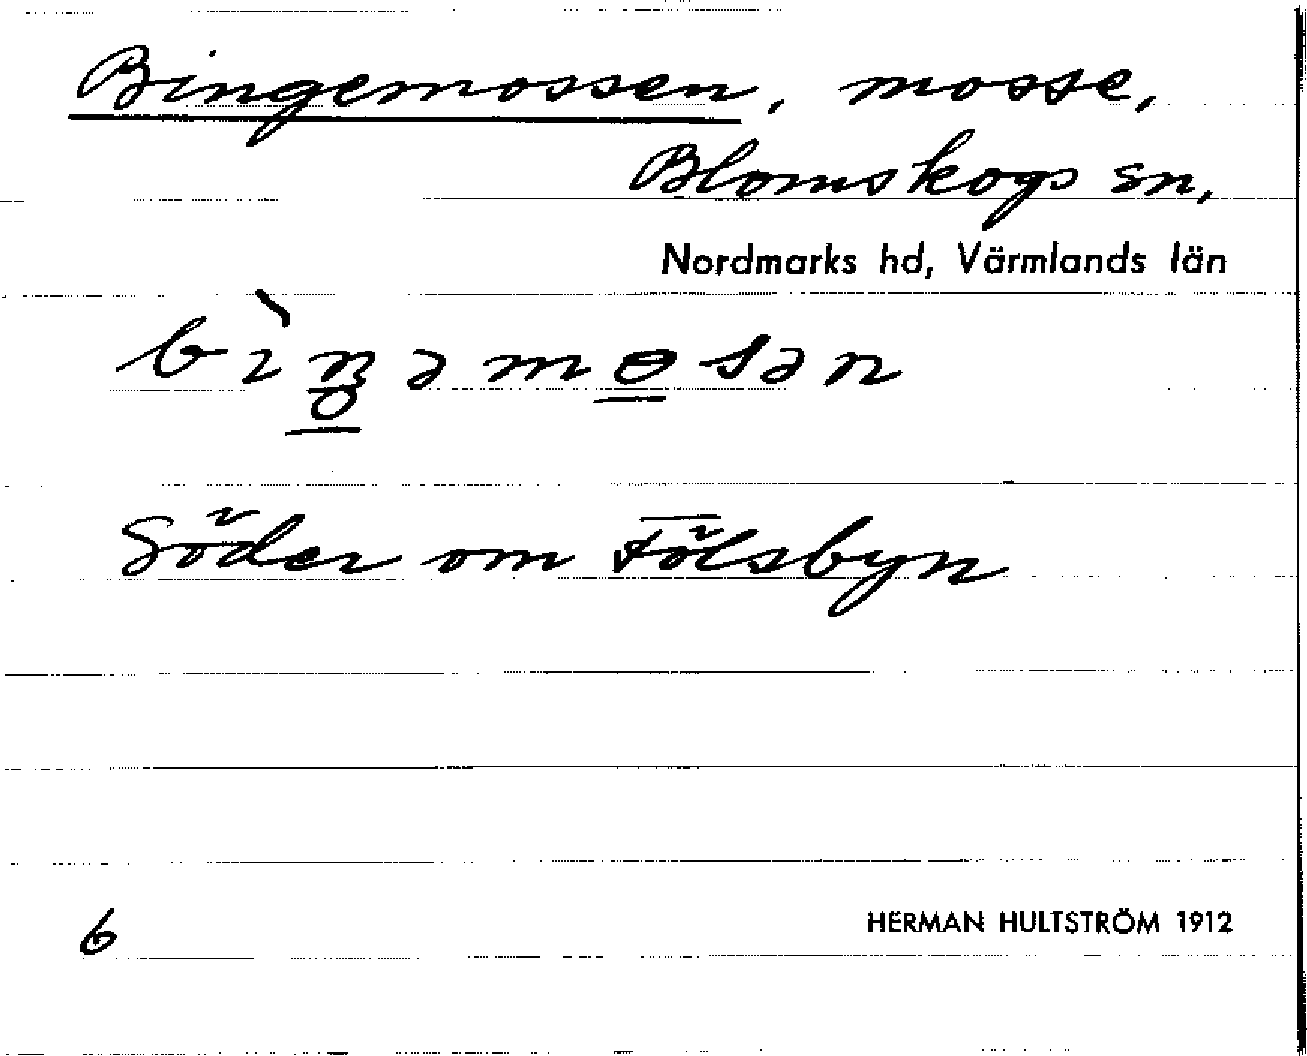 Bingemossen, mosse,
Blomskogs sn,
Nordmarks hd, Värmlands län
bìŋəmɵsən
Söder om Fölsbyn
6
HERMAN HULTSTRÖM 1912